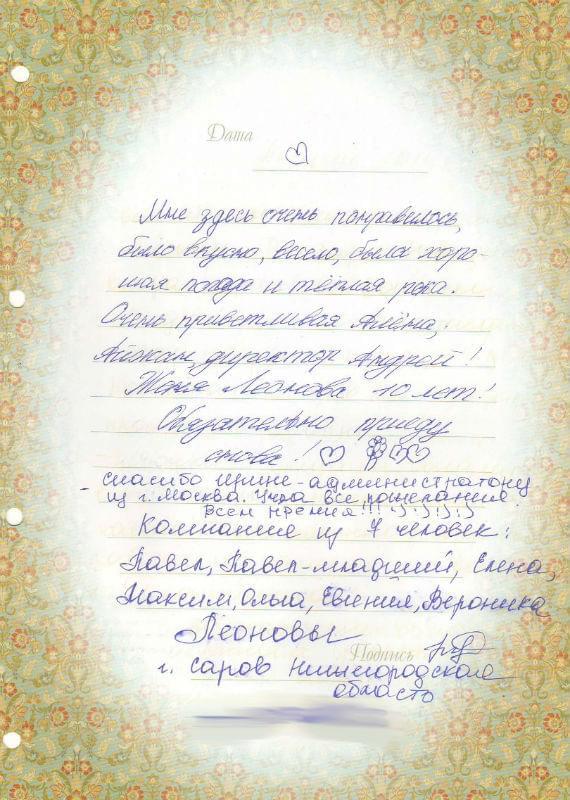 Дата
Мне здесь очень понравилось,
было вкусно, весело, была хоро-
шая погода и тёплая река.
Очень приветливая Алёна,
директор Андрей!
Женя Леонова 10 лет!
Обязательно приеду
снова!
- спасибо Ирине-администратору
из г. Москва. Учла все пожелания
Всем премия!!! :) :) :) :) :)
Компания из 7 человек:
Павел, Павел-младший, Елена,
Максим, Ольга, Евгений, Вероника
Леоновы
Подпись
г. Саров Нижегородская
область